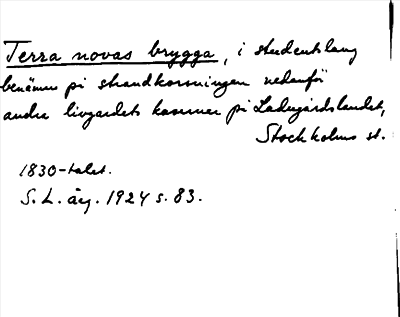 Terra novas brygga, i studentslang
benämn på strandkorsningen nedanför
andra livgardets kaserner på Ladugårdslandet,
Stockholms st.
1830-talet.
S. L. årg. 1924 s. 83.